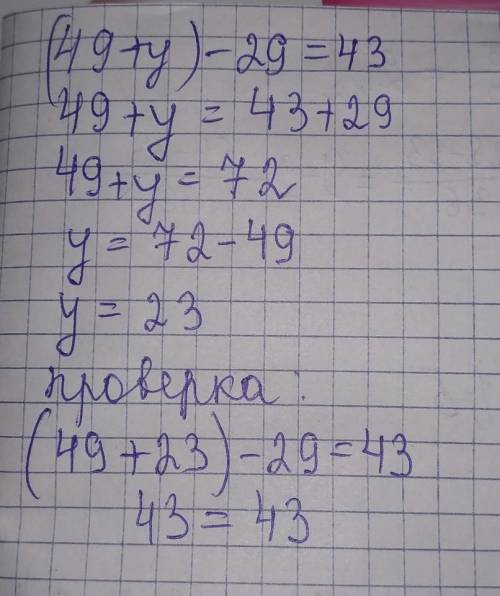 (49+y)-29=43
49+y=43+29
49+y=72
y=72-49
y=23
проверка:
(49+23)-29=43
43=43